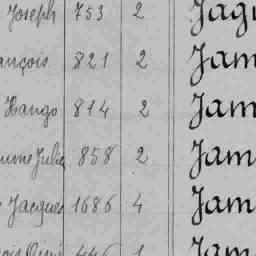 Joseph 753 2 Jagu
ançois 821 2 Jam
Hango 814 2 Jam
aume Julie 858 2 Jam
Jacques 1686 4 Jam
1 Jam